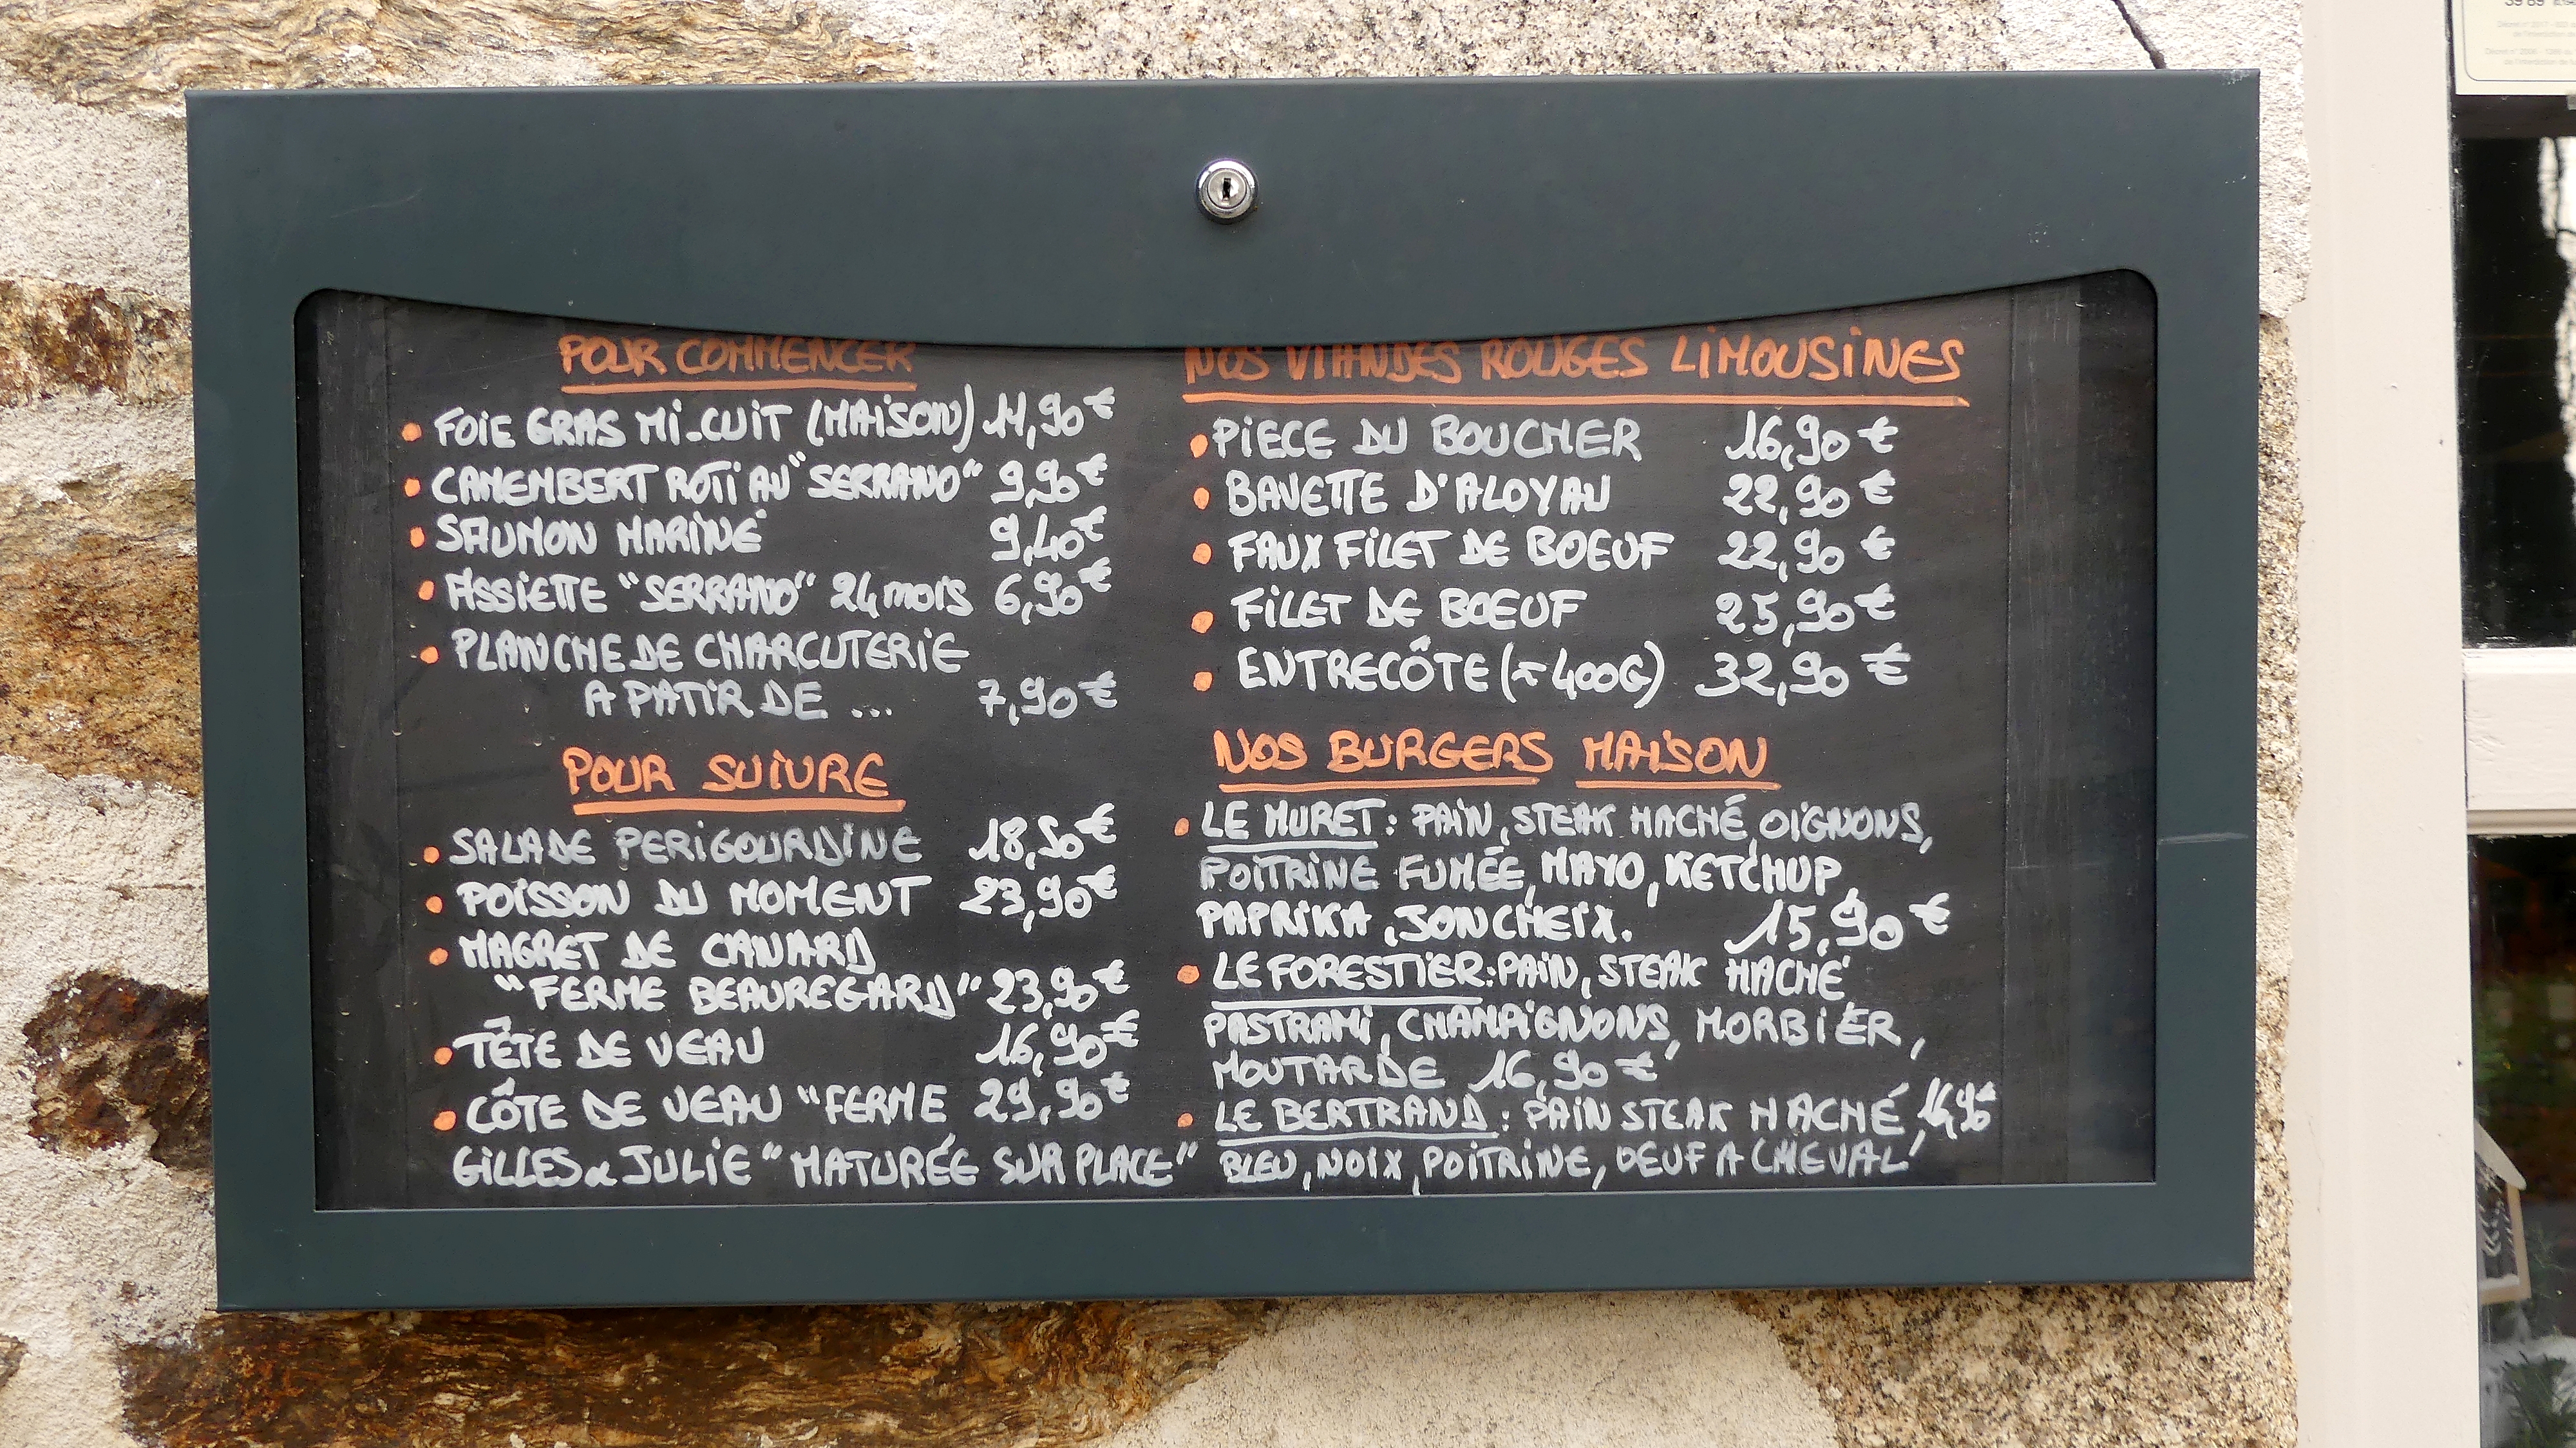 POUR COMMENCER
• FOIE GRAS MI-CUIT (MAISON) 14,90€
• CAMEMBERT ROTI AU "SERRANO" 9,90€
• SAUMON MARINÉ 9,40€
• ASSIETTE "SERRANO" 24 mois 6,90€
• PLANCHE DE CHARCUTERIE
A PATIR DE ... 7,90€
POUR SUIVRE
• SALADE PERIGOURDINE 18,50€
• POISSON DU MOMENT 23,90€
• MAGRET DE CANARD
"FERME BEAUREGARD" 23,90€
• TÊTE DE VEAU 16,90€
• CÔTE DE VEAU "FERME 29,90€
GILLES & JULIE" MATURÉE SUR PLACE"
NOS VIANDES ROUGES LIMOUSINES
• PIECE DU BOUCHER 16,90 €
• BAVETTE D'ALOYAU 22,90 €
• FAUX FILET DE BOEUF 22,90 €
• FILET DE BOEUF 25,90€
• ENTRECÔTE (≈ 400G) 32,90 €
NOS BURGERS MAISON
• LE MURET : PAIN, STEAK HACHÉ, OIGNONS,
POITRINE FUMÉE, MAYO, KETCHUP,
PAPRIKA, JONCHEIX. 15,90 €
• LE FORESTIER : PAIN, STEAK HACHÉ,
PASTRAMI, CHAMPIGNONS, MORBIER,
MOUTARDE 16,90 €
• LE BERTRAND : PAIN STEAK HACHÉ, 16,90€
BLEU, NOIX, POITRINE, OEUF A CHEVAL